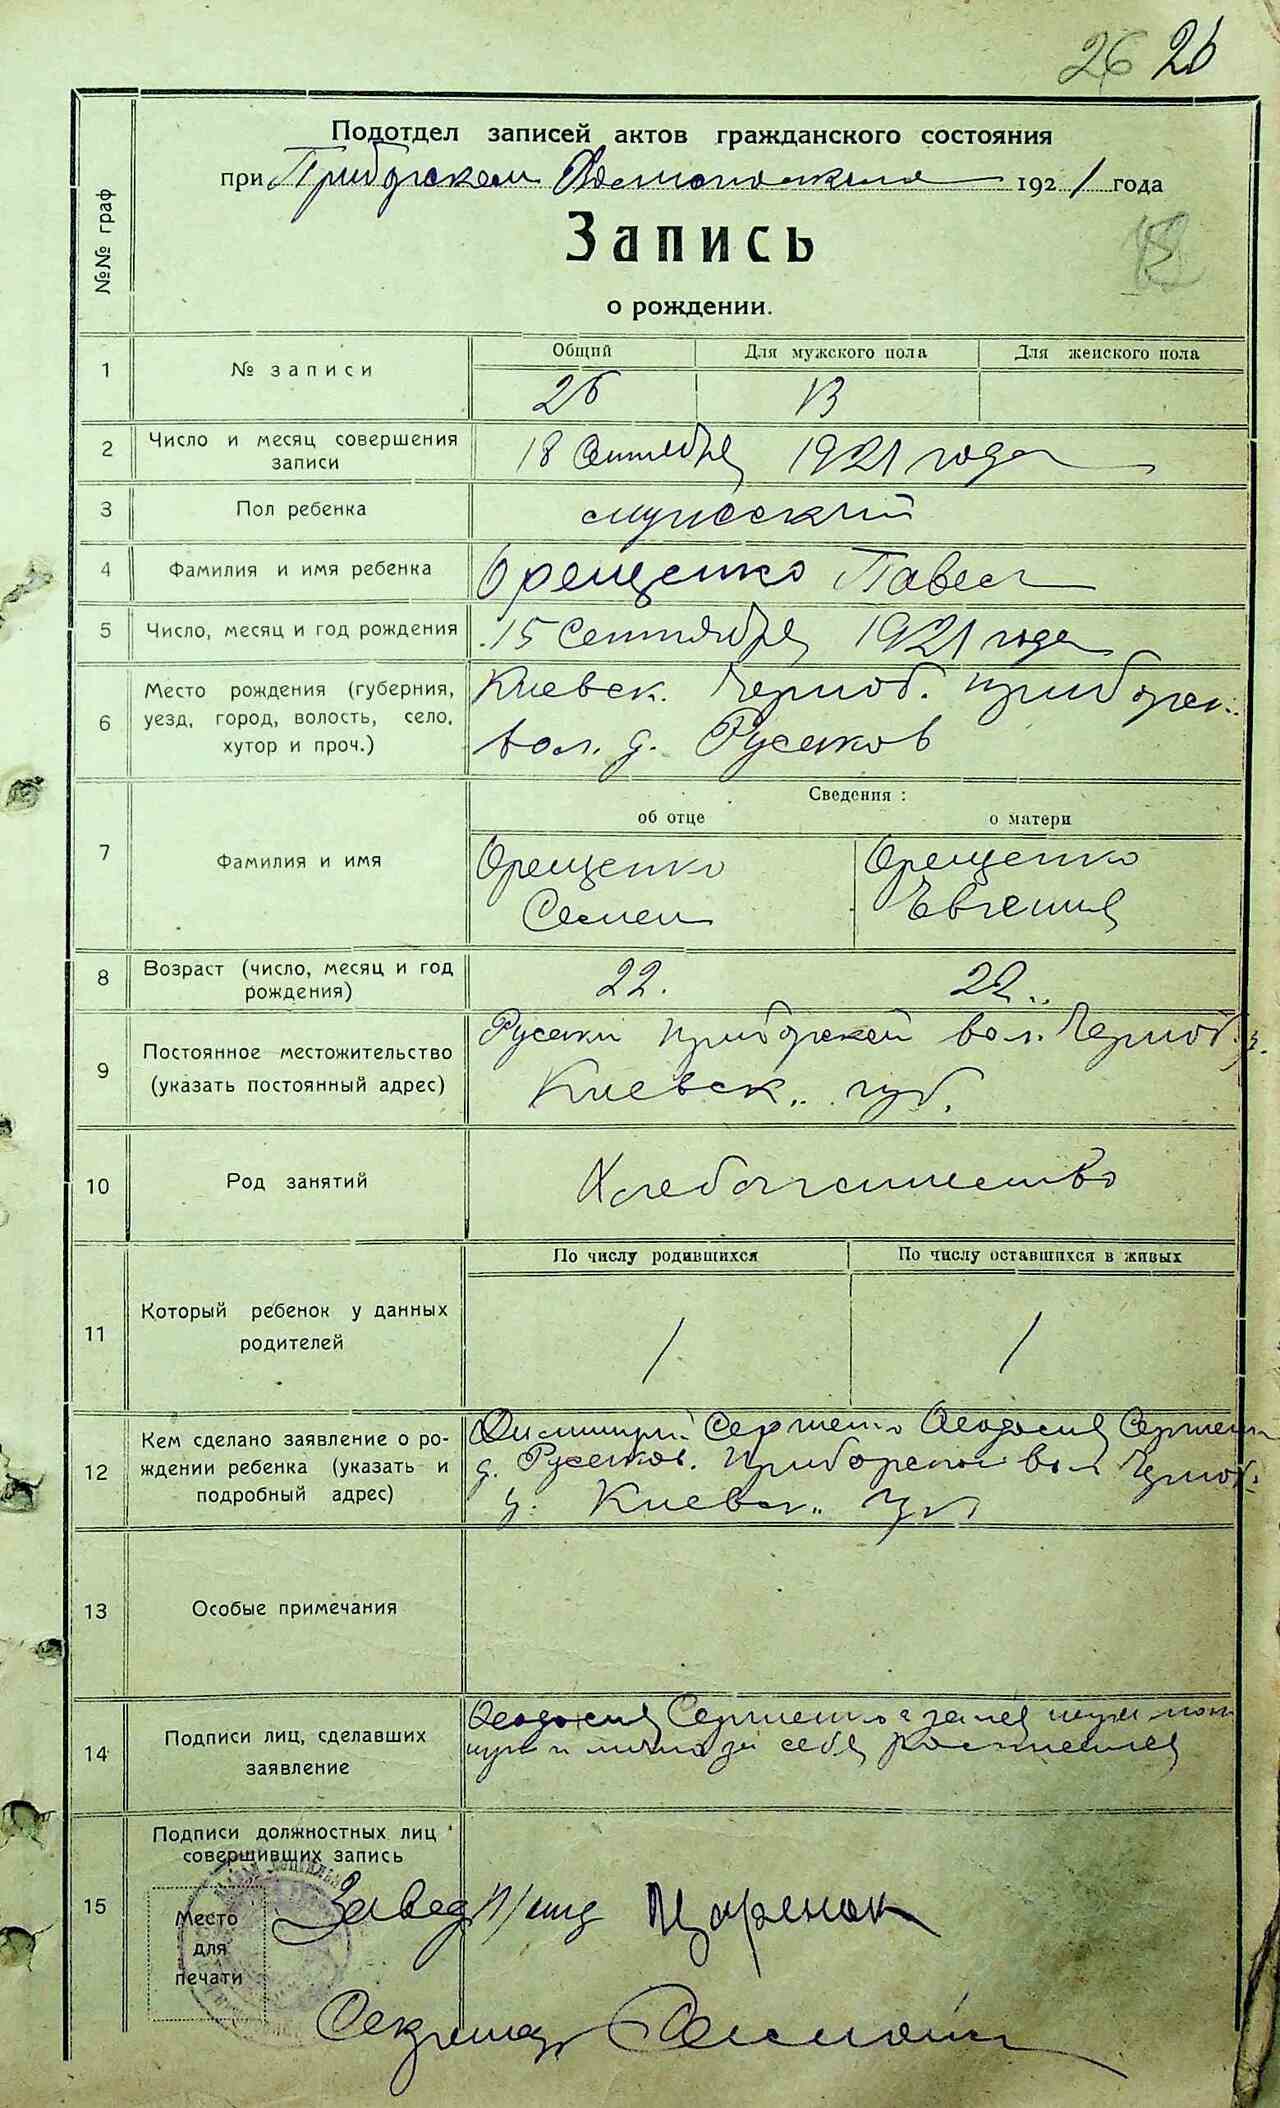 26 26
Подотдел записей актов гражданского состояния
при Приборском 1921 года
№№ граф
Запись
13
о рождении.
Общий Для мужского пола Для женского пола
1 № записи
26 13
2 Число и месяц совершения записи
18 Сентября 1921 года
3 Пол ребенка мужеский
4 Фамилия и имя ребенка Орещенко Павел
5 Число, месяц и год рождения 15 Сентября 1921 года
6 Место рождения (губерния, уезд, город, волость, село, хутор и проч.)
Киевск. Черноб. приборск.
вол. д. Русаков
Сведения:
об отце о матери
7 Фамилия и имя
Орещенко Орещенко
Семен Евгения
8 Возраст (число, месяц и год рождения)
22. 22..
9 Постоянное местожительство (указать постоянный адрес)
Русаки приборской вол. Черноб. у.
Киевск.. губ.
10 Род занятий Хлебопашество
По числу родившихся По числу оставшихся в живых
11 Который ребенок у данных родителей
1 1
12 Кем сделано заявление о рождении ребенка (указать и подробный адрес)
Сергиенко Феодосия Сергиенко
д. Русаков. Приборской вол Черноб.
у. Киевск.. губ
13 Особые примечания
14 Подписи лиц, сделавших заявление
Феодосия Сергиенко а за нея
за себя
15 Подписи должностных лиц совершивших запись
Место
для
печати
Завед. Царенок
Секретарь